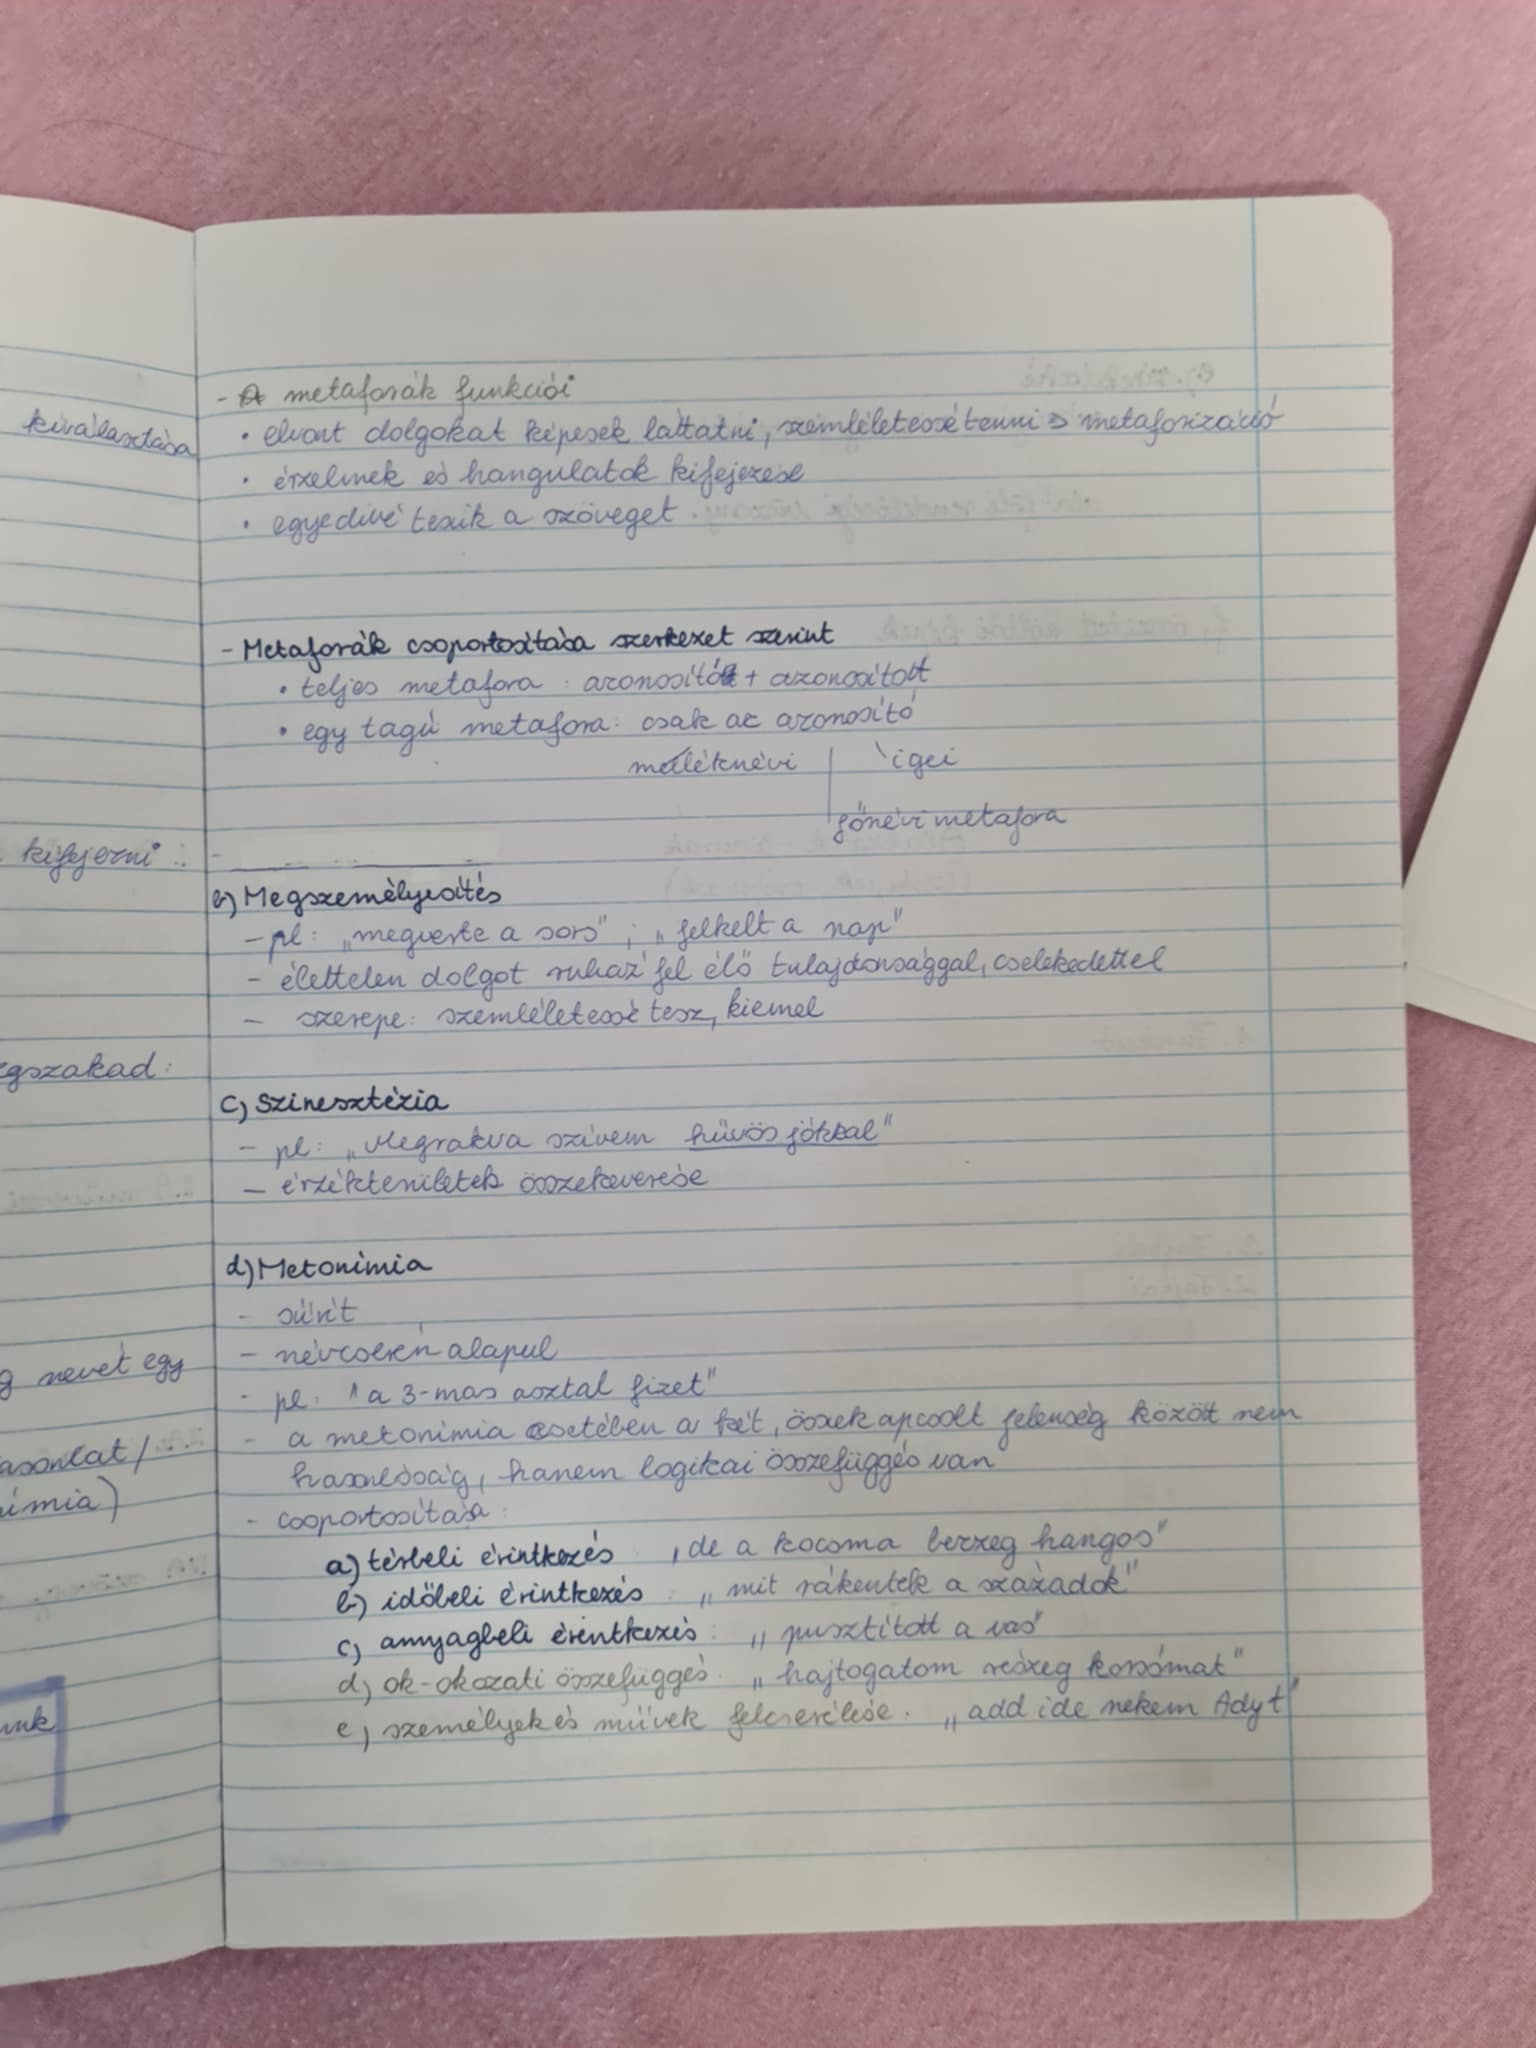 - A metaforák funkciói
• elvont dolgokat képesek láttatni, szemléletessé tenni => metaforizáció
• érzelmek és hangulatok kifejezése
• egyedivé teszik a szöveget.
- Metaforák csoportosítása szerkezet szerint
• teljes metafora: azonosító + azonosított
• egy tagú metafora: csak az azonosító
melléknévi | igei
főnévi metafora
b) Megszemélyesítés
- pl: „megverte a sors"; „felkelt a nap"
- élettelen dolgot ruház fel élő tulajdonsággal, cselekedettel
- szerepe: szemléletessé tesz, kiemel
c) Szinesztézia
- pl: „Megrakva szívem hűvös jókkal"
- érzékterületek összekeverése
d) Metonímia
- sűrít
- névcserén alapul
- pl: "a 3-mas asztal fizet"
- a metonímia esetében a két, összekapcsolt jelenség között nem
hasonlóság, hanem logikai összefüggés van
- csoportosítása:
a) térbeli érintkezés „de a kocsma bezzeg hangos"
b) időbeli érintkezés: „mit rákentek a századok"
c) anyagbeli érintkezés: „pusztított a vas"
d) ok-okozati összefüggés: „hajtogatom részeg korsómat"
e) személyek és művek felcserélése. „add ide nekem Adyt"
kiválasztása
kifejezni :
gszakad:
g nevét egy
asonlat /
ímia)
unk